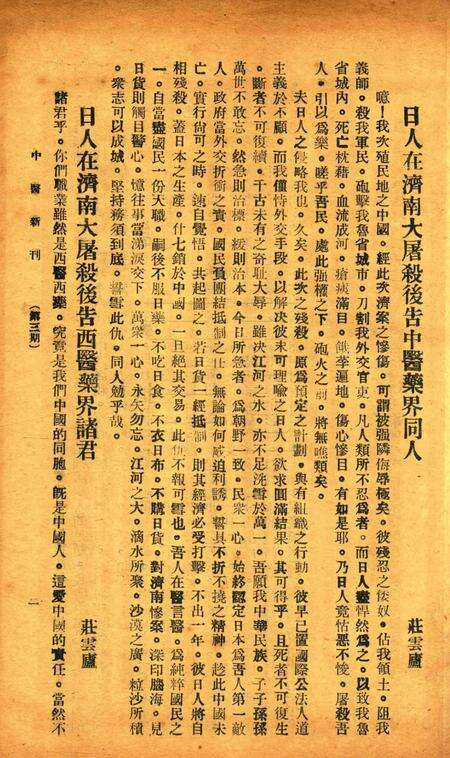 日人在濟南大屠殺後告中醫藥界同人　莊雲廬
噫！我次殖民地之中國。經此次濟案之慘傷。可謂被强隣侮辱極矣。彼殘忍之倭奴。佔我領土。阻我
義師。殺我軍民。砲擊我魯省城市。刀割我外交官吏。凡人類所不忍爲者。而日人盡悍然爲之。以致我魯
省城內。死亡枕藉。血流成河。瘡痍滿目。餓莩遍地。傷心慘目。有如是耶。乃日人竟怙惡不悛。屠殺吾
人。引以爲樂。嗟乎吾民。處此强權之下。砲火之。將無噍類矣。
夫日人之侵略我也。久矣。此次之殘殺。原爲預定之計劃。與有組織之行動。彼早已置國際公法人道
主義於不顧。而我僅恃外交手段。以解決彼未可理喻之日人。欲求圓滿結果。其可得乎。且死者不可復生
。斷者不可復續。千古未有之奇耻大辱。雖决江河之水。亦不足洗雪於萬一。吾願我中華民族。子子孫孫
萬世不敢忘。然急則治標。緩則治本。今日所急者。爲朝野一致。民衆一心。始終認定日本爲吾人第一敵
人。政府當外交折衝之責。國民負團結抵制之任。無論如何威迫利誘。誓具不折不撓之精神。趁此中國未
亡。實行尚可之時。速自覺悟。共起圖之。若日貨一經抵制。則其經濟必受打擊。不出一年。彼日人將自
相殘殺。蓋日本之生產。什七銷於中國。一旦絕其交易。此仇不報可雪也。吾人在醫言醫。爲純粹國民之
一。自當盡國民一份天職。嗣後不服日藥。不吃日食。不衣日布。不購日貨。對濟南慘案。深印腦海。見
日貨則觸目警心。憶往事當涕淚交下。萬衆一心。永矢勿忘。江河之大。滴水所聚。沙漠之廣。粒沙所積
。衆志可以成城。堅持務須到底。誓雪此仇。同人勉乎哉。
日人在濟南大屠殺後告西醫藥界諸君　莊雲廬
諸君乎。你們職業雖然是西醫西藥。究竟是我們中國的同胞。旣是中國人。這愛中國的責任。當然不
中醫新刊　（第三期）　二